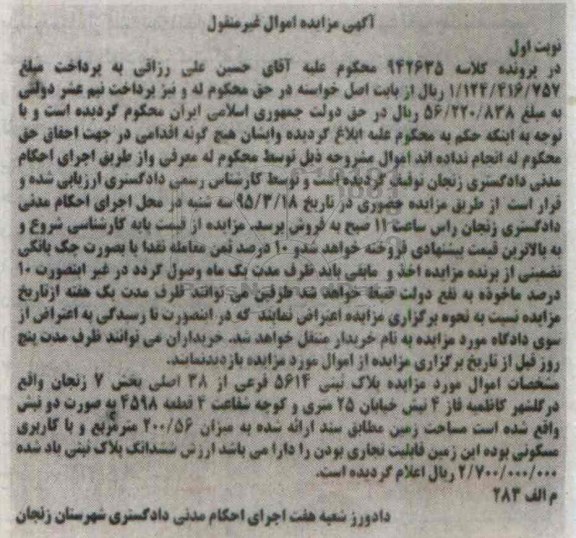 آگهی مزایده اموال غیرمنقول
نوبت اول
در پرونده کلاسه ۹۴۲۶۳۵ محکوم علیه آقای حسین علی رزاقی به پرداخت مبلغ
۱/۱۲۴/۴۱۶/۷۵۷ ریال از بابت اصل خواسته در حق محکوم له و نیز پرداخت نیم عشر دولتی
به مبلغ ۵۶/۲۲۰/۸۳۸ ریال در حق دولت جمهوری اسلامی ایران محکوم گردیده است و با
توجه به اینکه حکم به محکوم علیه ابلاغ گردیده وایشان هیچ گونه اقدامی در جهت احقاق حق
محکوم له انجام نداده اند اموال مشروحه ذیل توسط محکوم له معرفی واز طریق اجرای احکام
مدنی دادگستری زنجان توقیف گردیده است و توسط کارشناس رسمی دادگستری ارزیابی شده و
قرار است از طریق مزایده حضوری در تاریخ ۹۵/۳/۱۸ سه شنبه در محل اجرای احکام مدنی
دادگستری زنجان راس ساعت ۱۱ صبح به فروش برسد. مزایده از قیمت پایه کارشناسی شروع و
به بالاترین قیمت پیشنهادی فروخته خواهد شدو ۱۰ درصد ثمن معامله نقدا یا بصورت چک بانکی
تضمینی از برنده مزایده اخذ و مابقی باید ظرف مدت یک ماه وصول گردد در غیر اینصورت ۱۰
درصد ماخوذه به نفع دولت ضبط خواهد شد طرفین می توانند ظرف مدت یک هفته ازتاریخ
مزایده نسبت به نحوه برگزاری مزایده اعتراض نمایند که در اینصورت تا رسیدگی به اعتراض از
سوی دادگاه مورد مزایده به نام خریدار منتقل خواهد شد. خریداران می توانند ظرف مدت پنج
روز قبل از تاریخ برگزاری مزایده از اموال مورد مزایده بازدیدنمایند.
مشخصات اموال مورد مزایده پلاک ثبتی ۵۶۱۴ فرعی از ۳۸ اصلی بخش ۷ زنجان واقع
درگلشهر کاظمیه فاز ۴ نبش خیابان ۲۵ متری و کوچه شفاعت ۴ قطعه ۴۵۹۸ به صورت دو نبش
واقع شده است مساحت زمین مطابق سند ارائه شده به میزان ۲۰۰/۵۶ مترمربع و با کاربری
مسکونی بوده این زمین قابلیت تجاری بودن را دارا می باشد ارزش ششدانگ پلاک ثبتی یاد شده
۲/۷۰۰/۰۰۰/۰۰۰ ریال اعلام گردیده است.
م الف ۲۸۳
دادورز شعبه هفت اجرای احکام مدنی دادگستری شهرستان زنجان